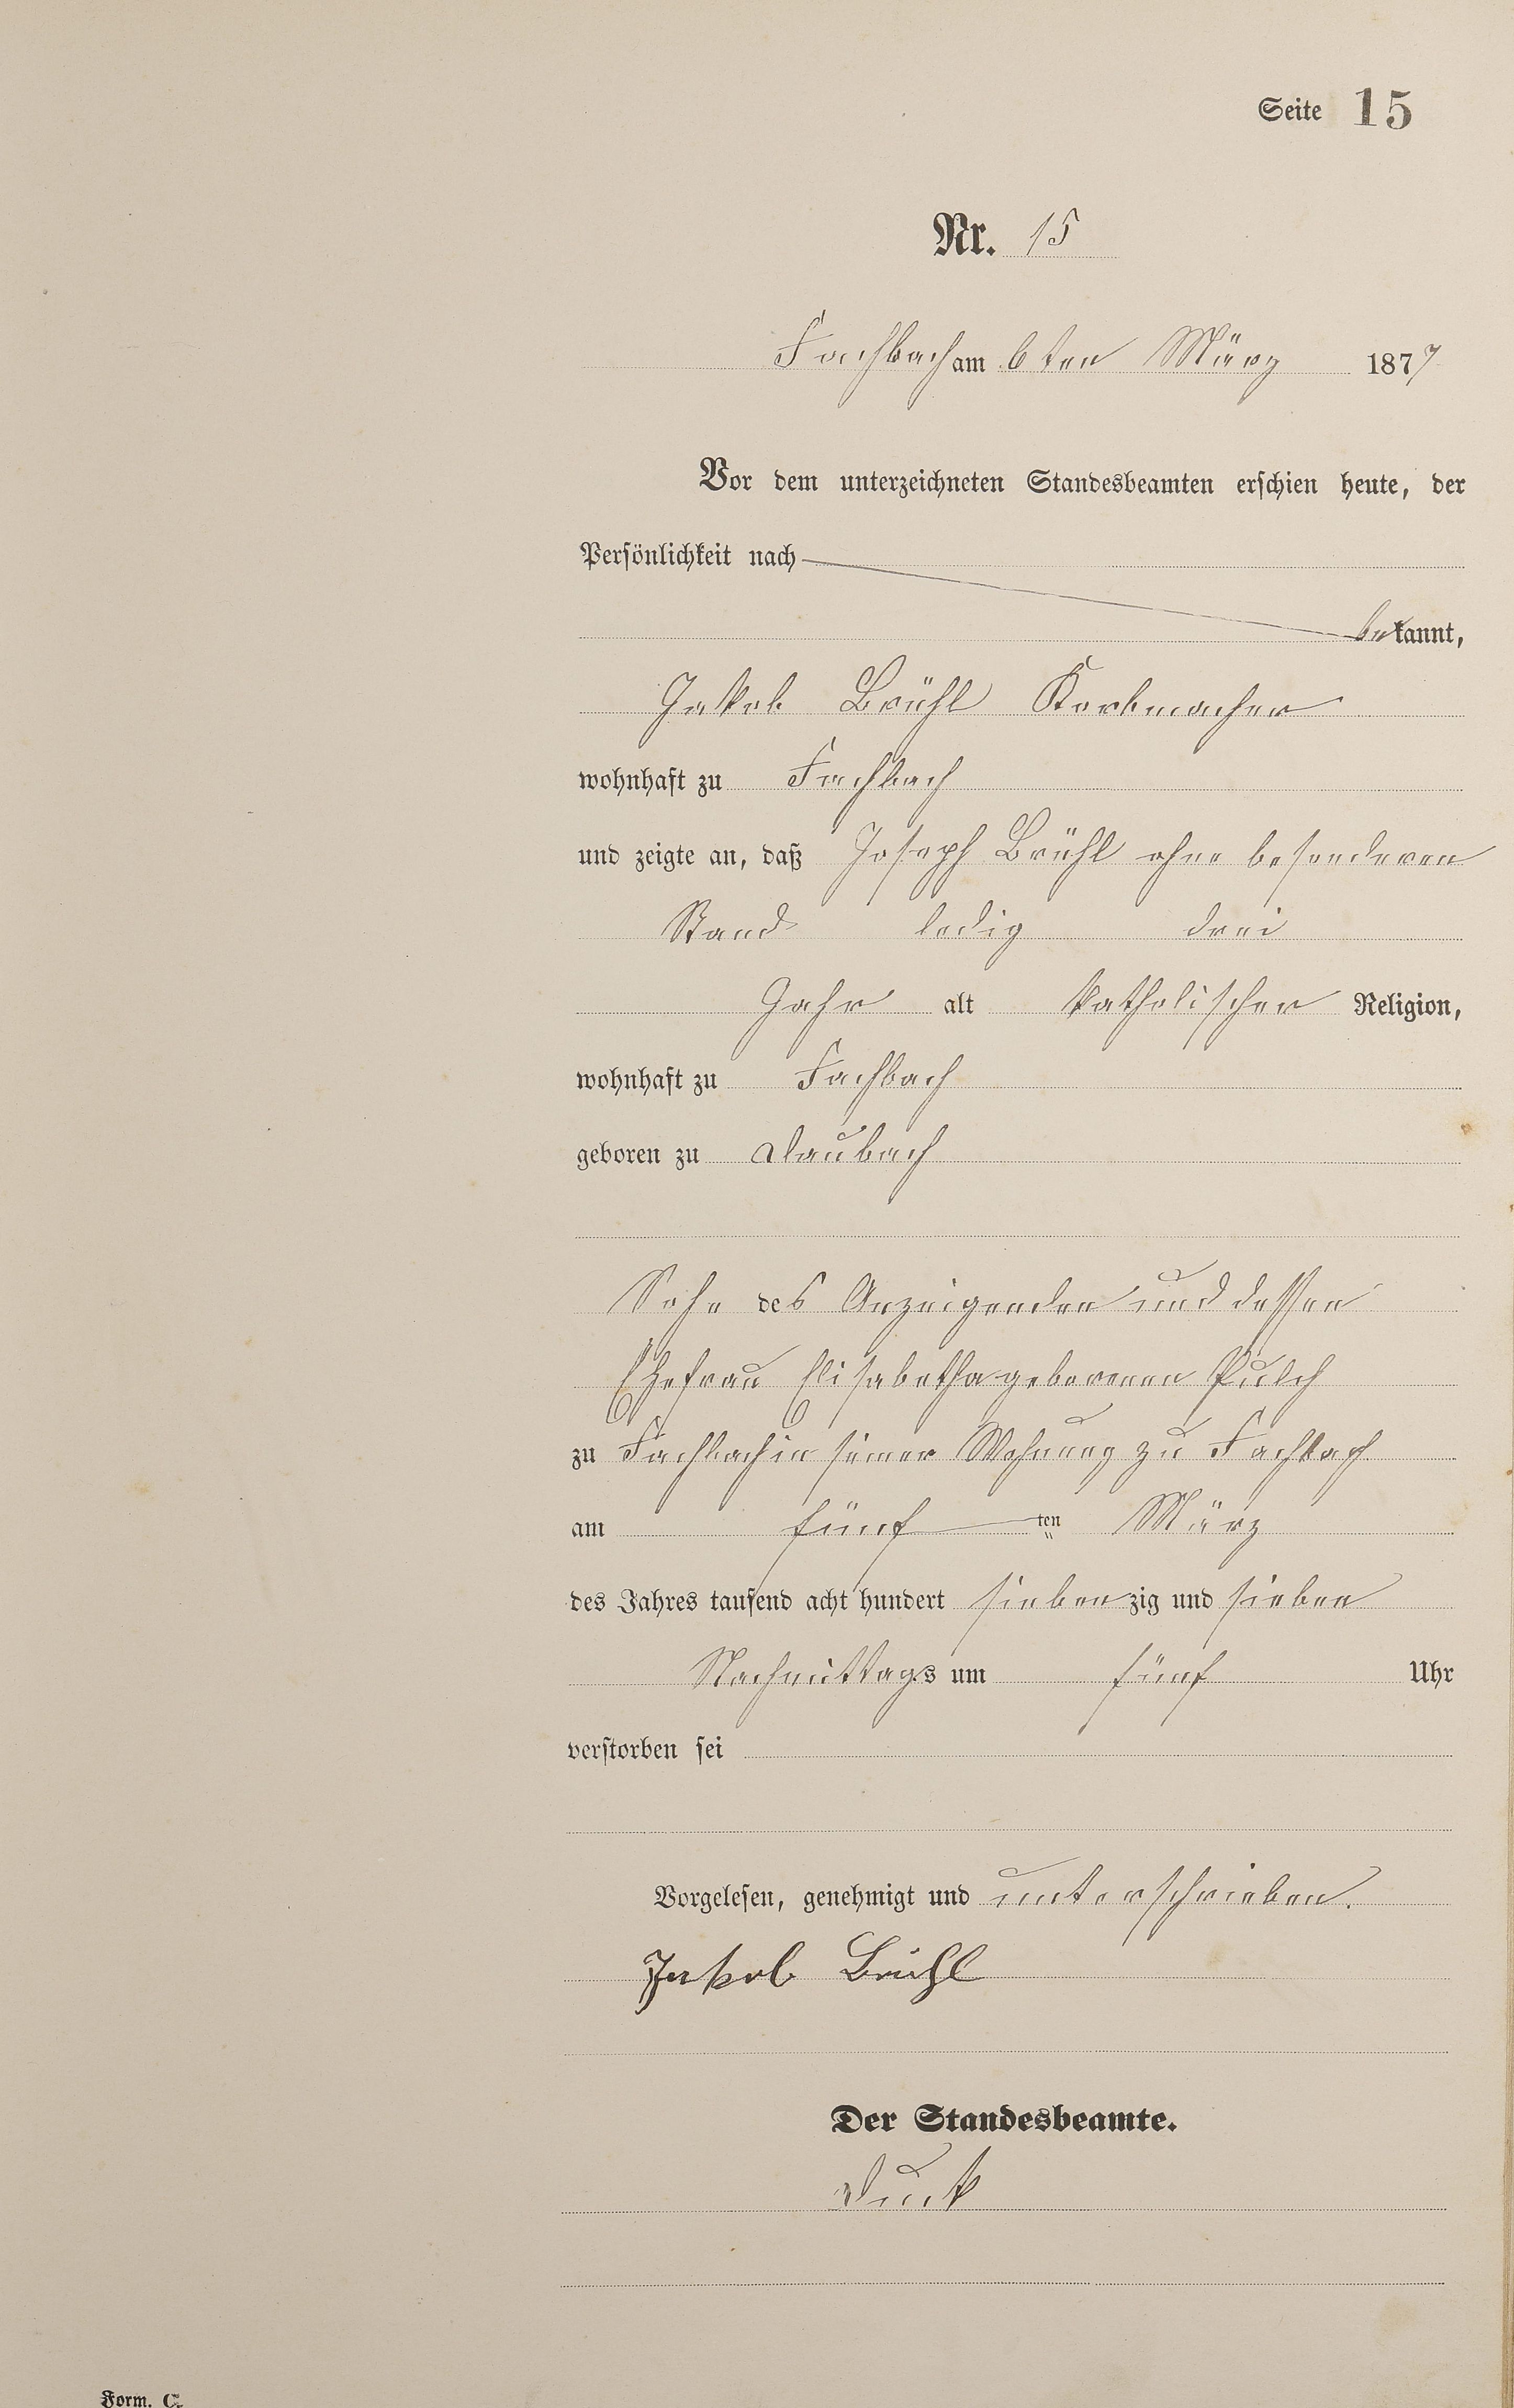 Seite 15
Nr. 15
Fachbach am 6ten März 1877
Vor dem unterzeichneten Standesbeamten erschien heute, der
Persönlichkeit nach
bekannt,
Jakob Brühl Korbmacher
wohnhaft zu Fachbach
und zeigte an, daß Joseph Brühl ohne besonderen
Stand ledig drei
Jahr alt katholischer Religion,
wohnhaft zu Fachbach
geboren zu Daubach
Sohn des Anzeigenden und dessen
Ehefrau Elisabetha geborenen Pulch
zu Fachbach in seiner Wohnung zu Fachbach
am fünf ten März
des Jahres tausend acht hundert siebenzig und sieben
Nachmittags um fünf Uhr
verstorben sei
Vorgelesen, genehmigt und unterschrieben.
Jakob Brühl
Der Standesbeamte.
Form. C.